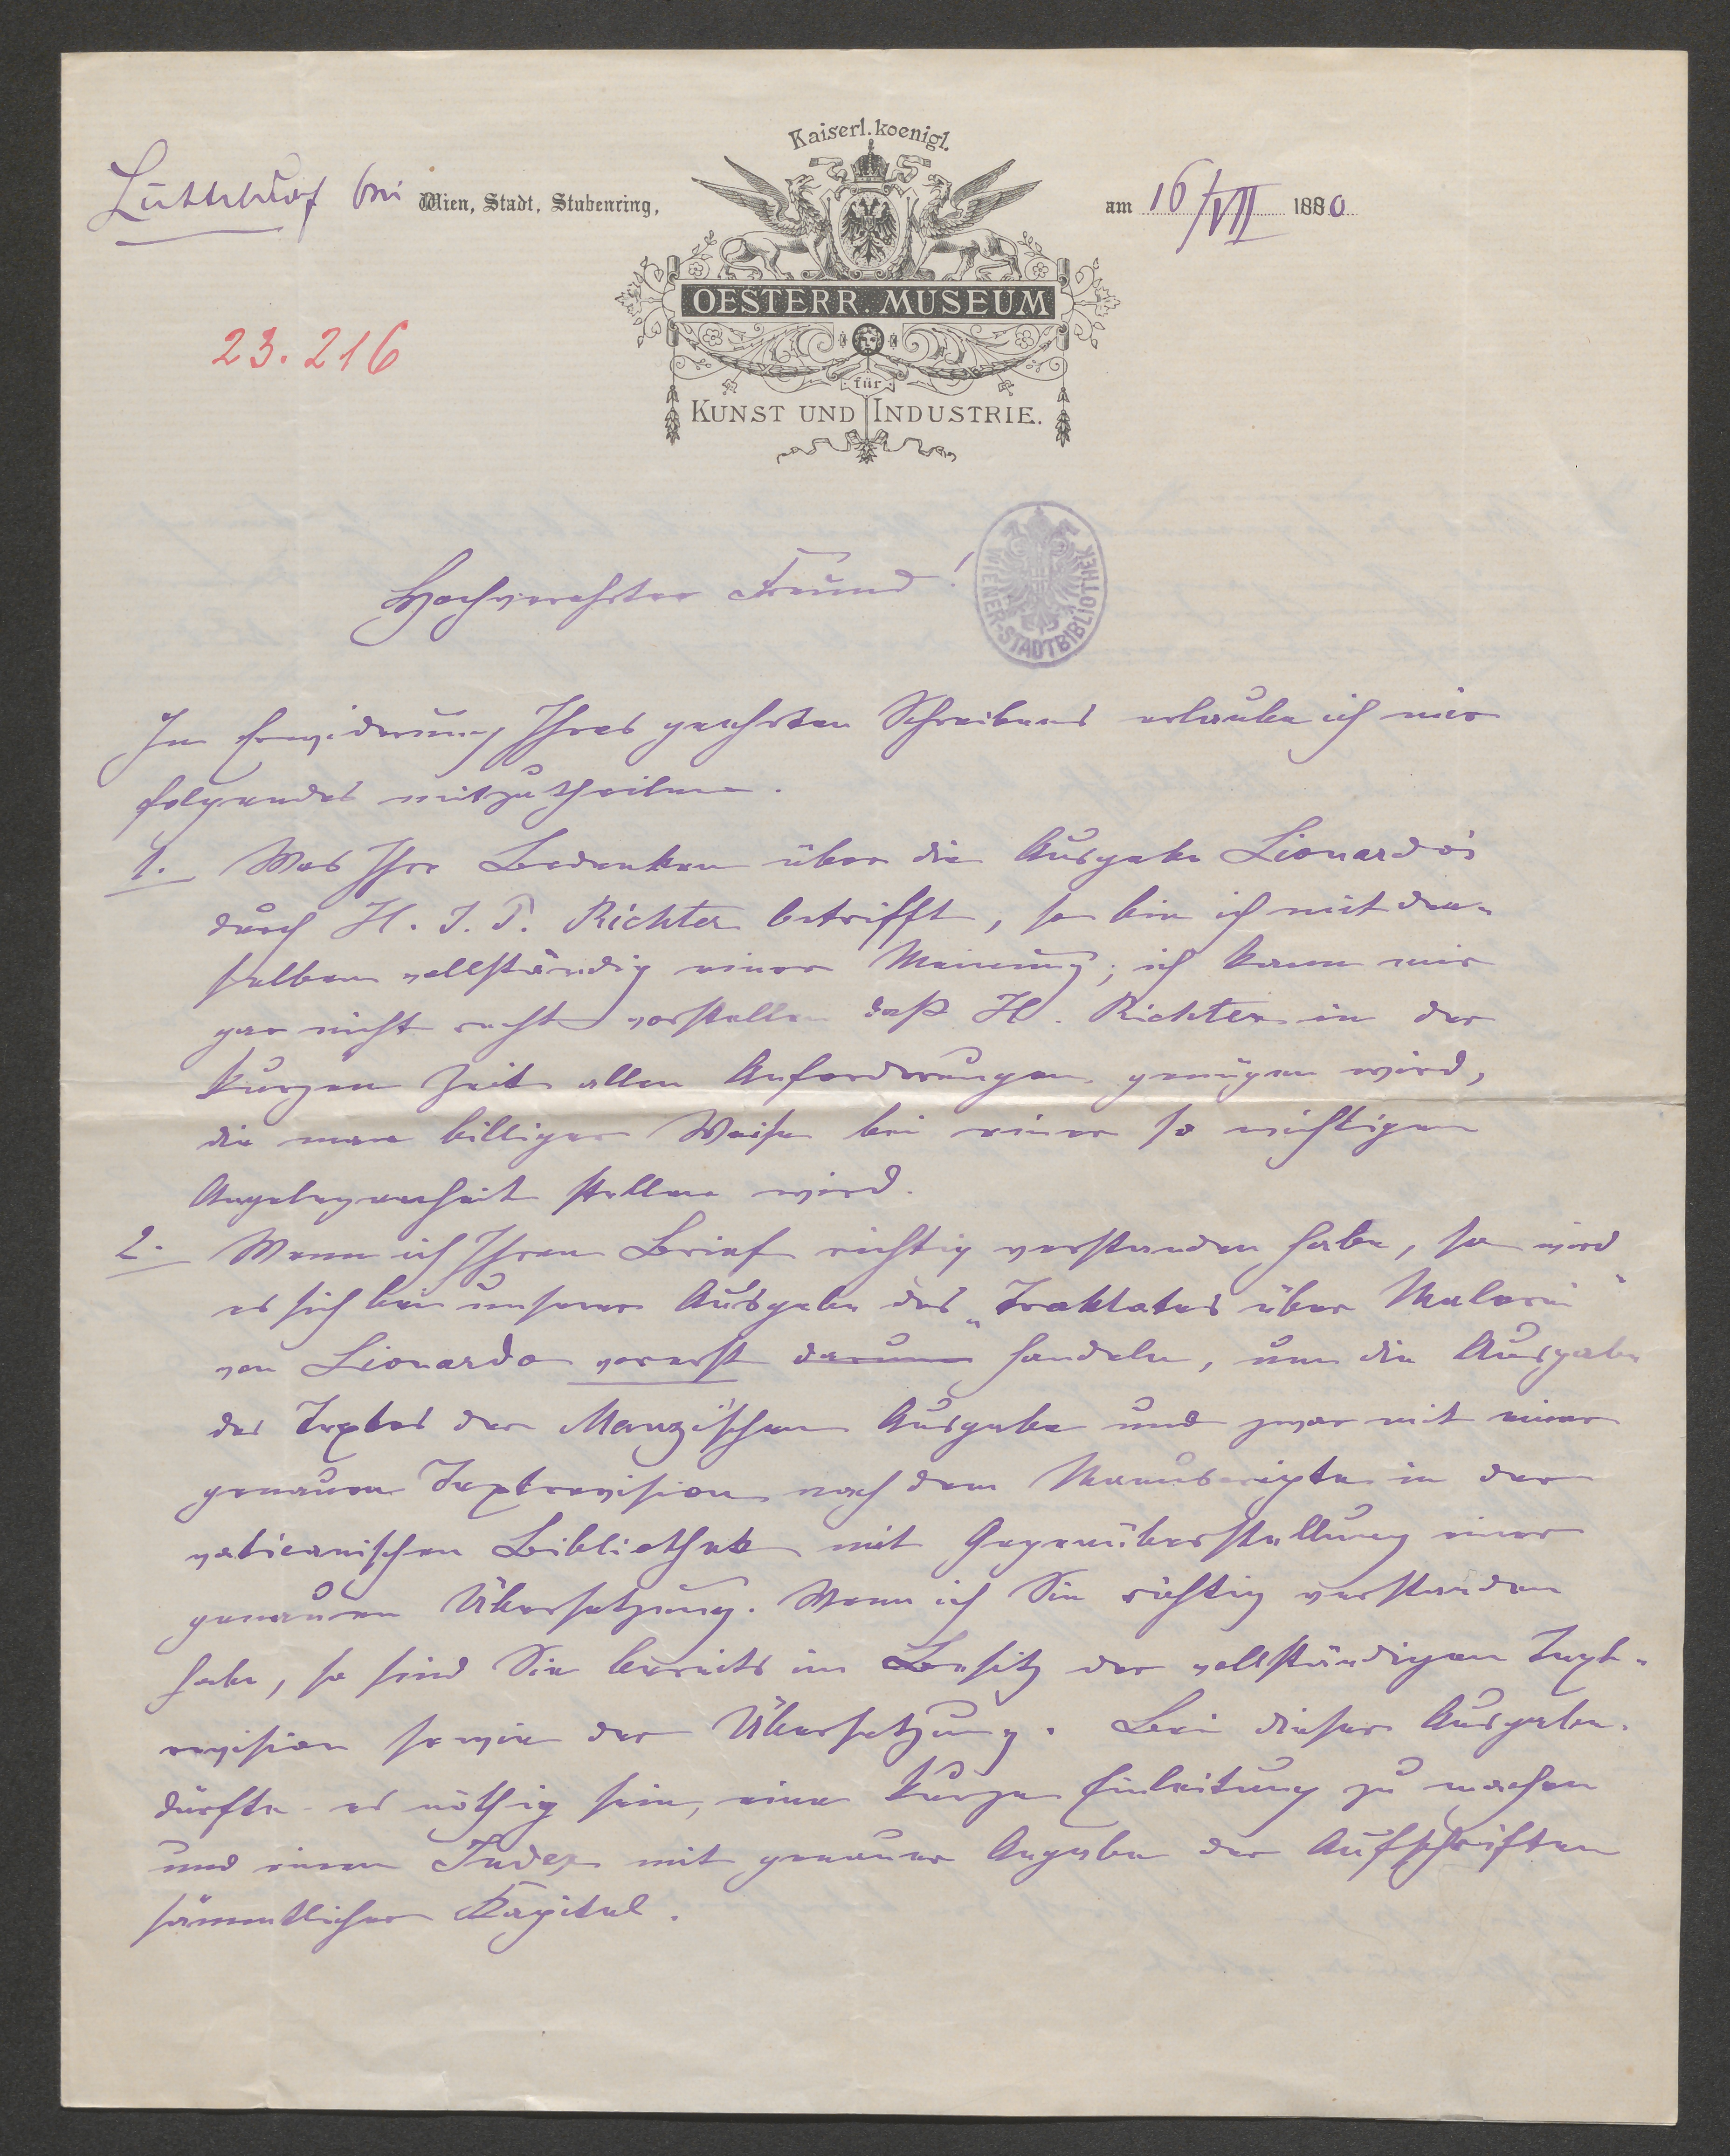 Kaiserl. koenigl.
Hütteldorf bei Wien, Stadt, Stubenring,
am 16/VII 1880
OESTERR. MUSEUM
für
KUNST UND INDUSTRIE.
23.216
Hochverehrter Freund!
WIENER-STADTBIBLIOTHEK
In Erwiderung Ihres geehrten Schreibens erlaube ich mir
folgendes mitzutheilen.
1. Was Ihre Bedenken über die Ausgabe Lionardo's
durch H. J. P. Richter betrifft, so bin ich mit den-
selben vollständig einer Meinung; ich kann mir
gar nicht recht vorstellen daß H. Richter in der
kurzen Zeit allen Anforderungen genügen wird,
die man billiger Weise bei einer so wichtigen
Angelegenheit stellen wird.
2. Wenn ich Ihren Brief richtig verstanden habe, so wird
es sich bei unserer Ausgabe des „Traktates über Malerei"
von Lionardo vorerst darum handeln, um die Ausgabe
des Textes der Manzi'schen Ausgabe und zwar mit einer
genauen Textrevision nach dem Manuscripte in der
vaticanischen Bibliothek mit Gegenüberstellung einer
genauen Übersetzung. Wenn ich Sie richtig verstanden
habe, so sind Sie bereits im Besitz der vollständigen Text-
revision sowie der Übersetzung. Bei dieser Ausgabe
dürfte es nöthig sein, eine kurze Einleitung zu machen
und einen Index mit genauer Angabe der Aufschriften
sämmtlicher Kapitel.